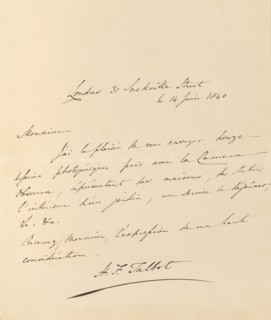 Londres 31 Sackville Street
le 14 Juin 1840
Monsieur
J'ai le plaisir de vous envoyer douze
dessins photogéniques pris avec la Camera
Obscura, représentant des maisons, des statues
l'intérieur d'un jardin, un service de déjeuner,
&c. &c.
Recevez, Monsieur, l'expression de ma haute
considération.
H. F. Talbot